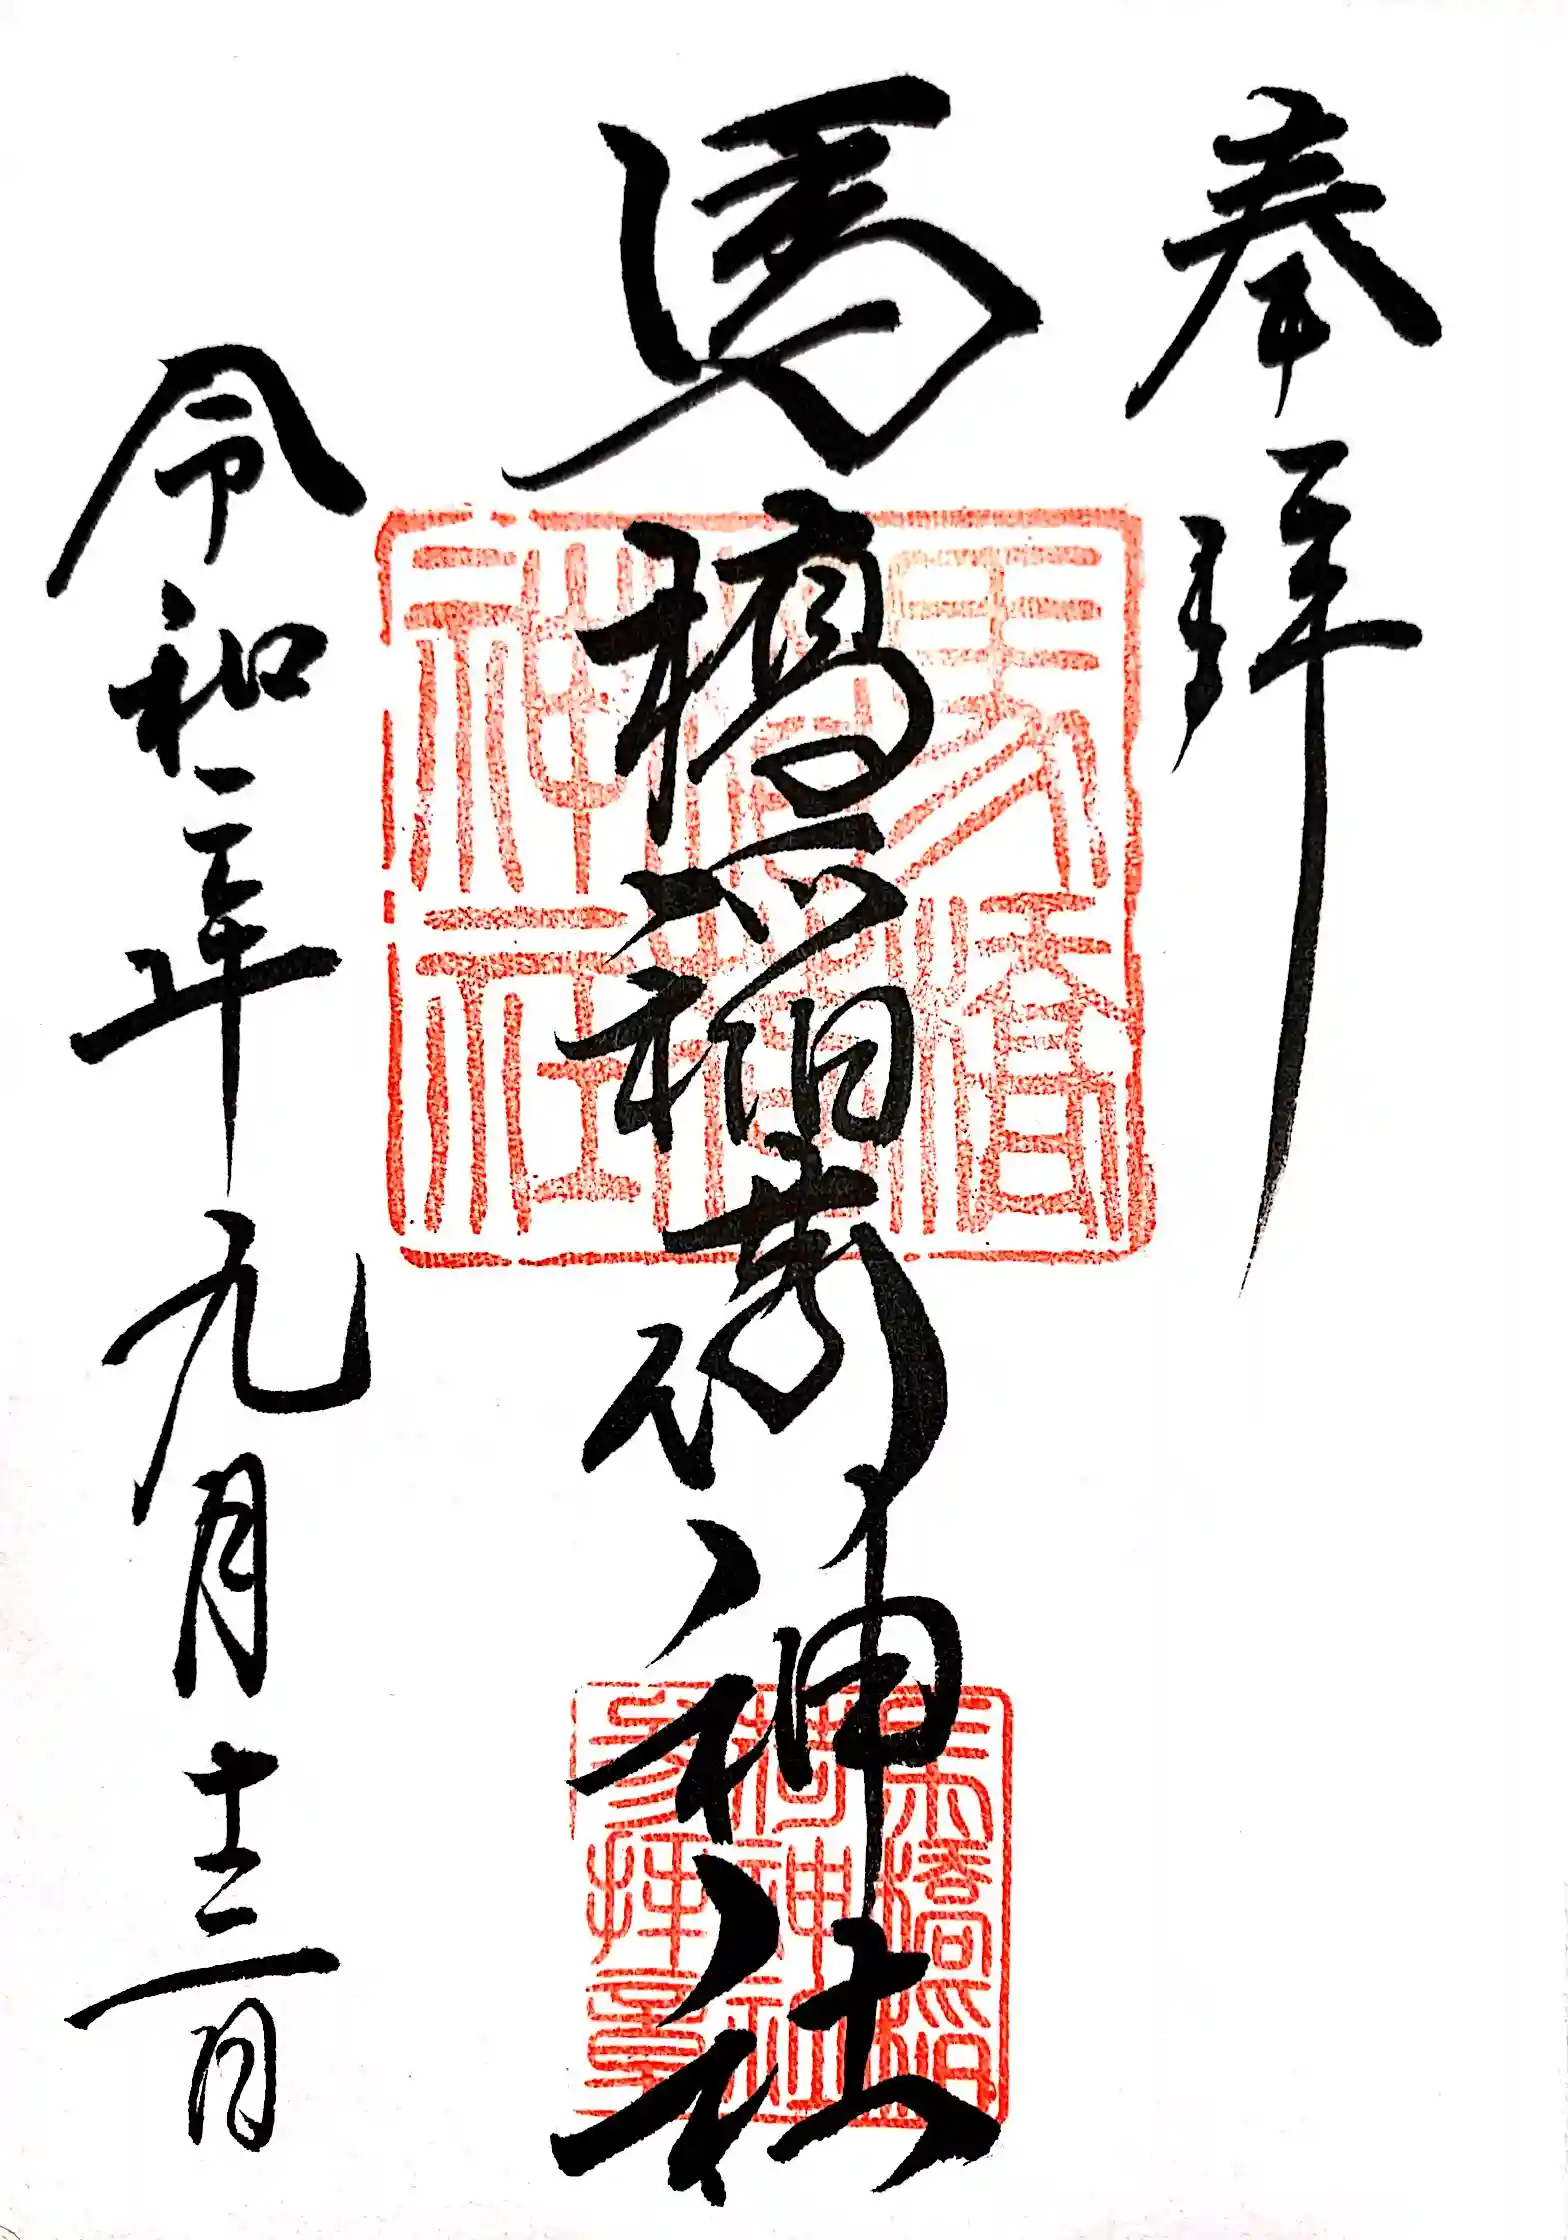 奉拝
馬橋稲荷神社
令和三年九月十三日
馬橋
稲荷
神社
馬橋稲
荷神社
参拝章